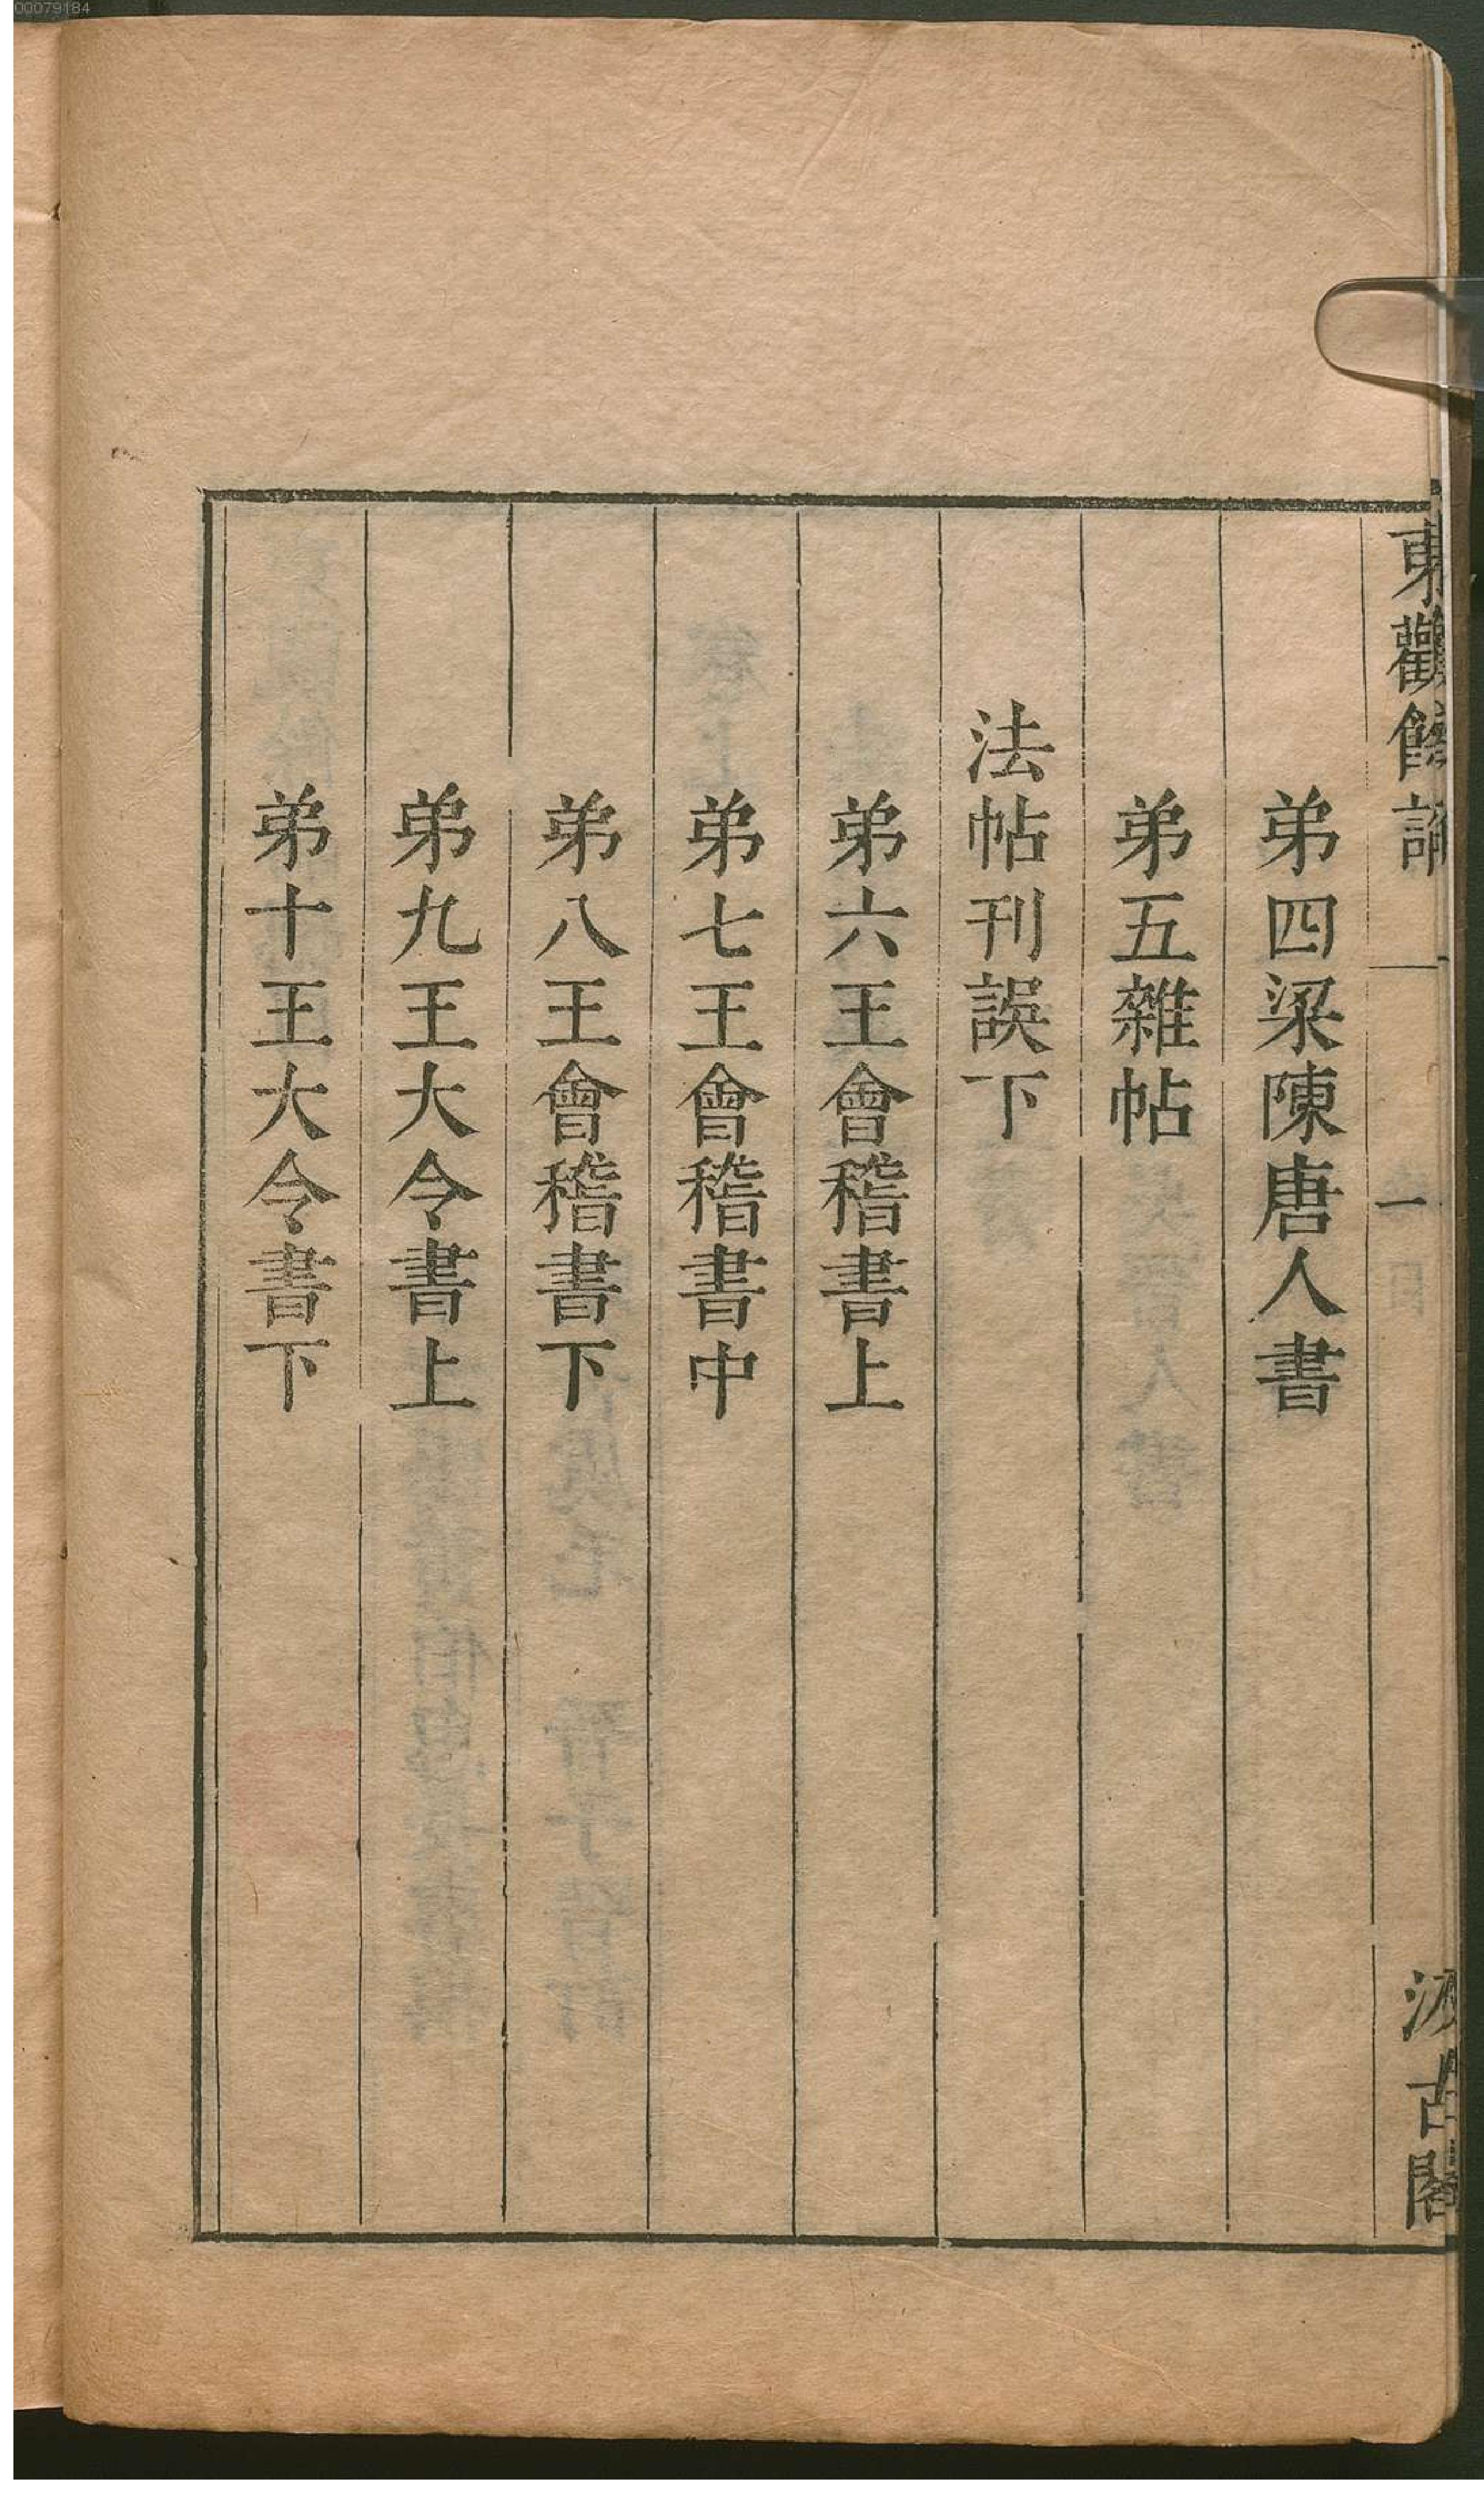 東觀餘論
一
汲古閣
弟四梁陳唐人書
弟五雜帖
法帖刊誤下
弟六王會稽書上
弟七王會稽書中
弟八王會稽書下
弟九王大令書上
弟十王大令書下
00079184